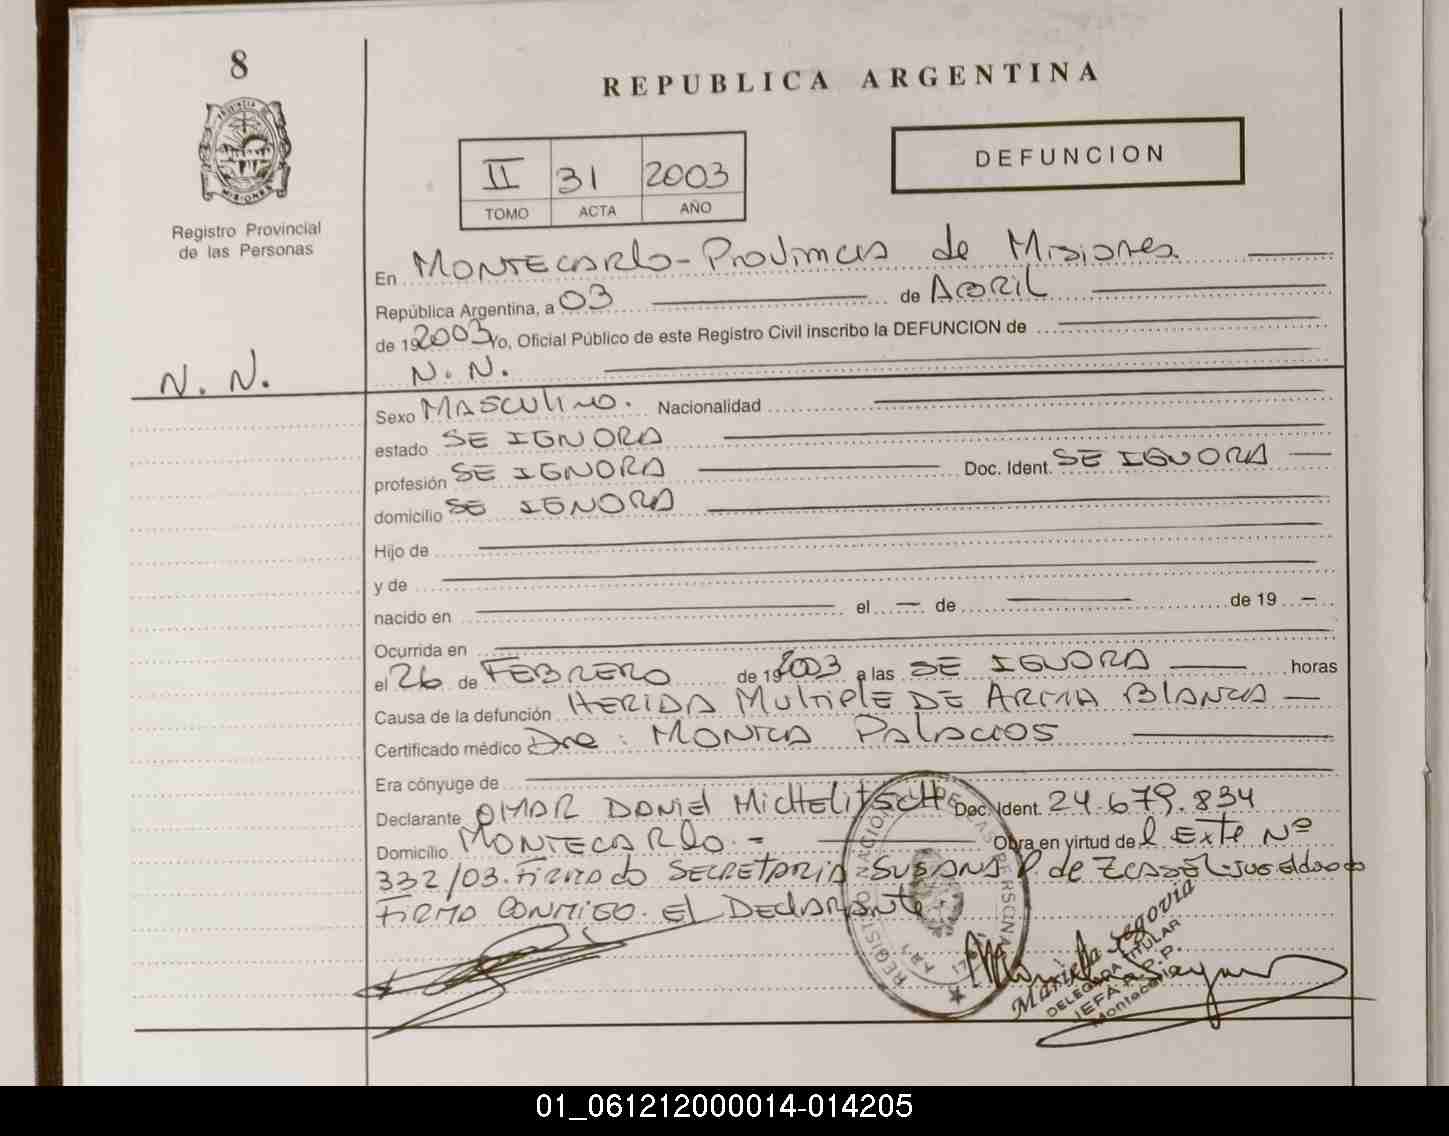 8
REPUBLICA ARGENTINA
II 31 2003
TOMO ACTA AÑO
DEFUNCION
Registro Provincial
de las Personas
En MONTECARLO - PROVINCIA de Misiones
República Argentina, a 03 de ABRIL
de 192003 Yo, Oficial Público de este Registro Civil inscribo la DEFUNCION de
N. N.
N. N.
Sexo MASCULINO. Nacionalidad
estado SE IGNORA
profesión SE IGNORA Doc. Ident. SE IGNORA
domicilio SE IGNORA
Hijo de
y de
nacido en el de de 19
Ocurrida en
el 26 de FEBRERO de 192003 a las SE IGNORA horas
Causa de la defunción HERIDA Multiple DE ARMA BLANCA
Certificado médico Dra: MONICA PALACIOS
Era cónyuge de
Declarante OMAR DANIEL MICHELITSCH Doc. Ident. 24.679.834
Domicilio MONTECARLO. - Obra en virtud del Exte Nº
332/03. Firmado SECRETARIA SUSANA P. de Juzgado
FIRMA CONMIGO. EL DECLARANTE
Mariela Segovia
DELEGADA TITULAR
JEFA R.P.P.
Montecarlo
01_061212000014-014205